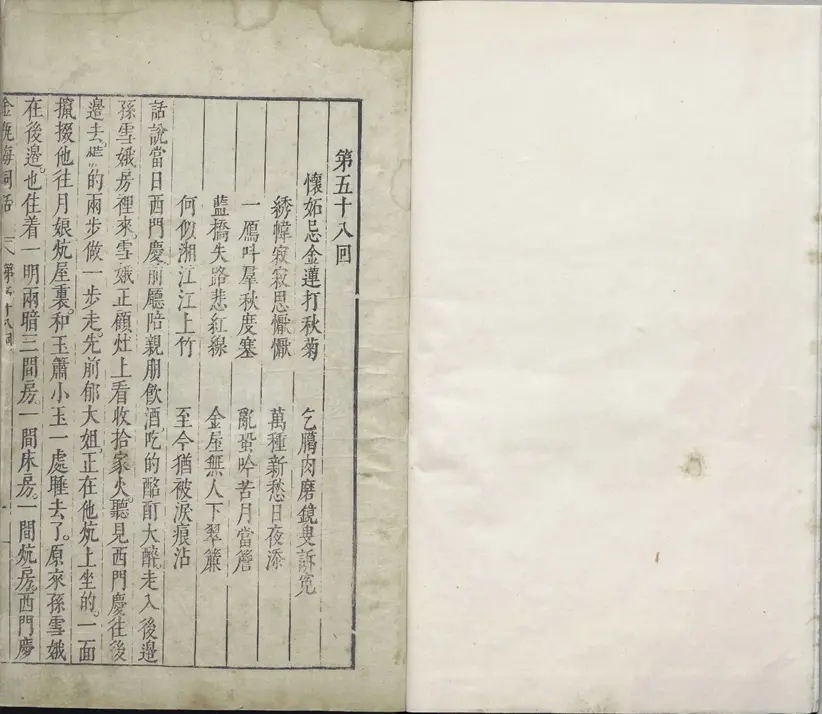 第五十八回
懷妬忌金蓮打秋菊 乞臘肉磨鏡叟訴冤
綉幃寂寂思懨懨 萬種新愁日夜添
一鴈呌羣秋度塞 亂蛩吟苦月當簷
藍橋失路悲紅線 金屋無人下翠簾
何似湘江江上竹 至今猶被淚痕沾
話說當日西門慶前廳陪親朋飲酒。吃的酩酊大醉。走入後邊
孫雪娥房裡來。雪娥正顧灶上看收拾家火。聽見西門慶往後
邊去。慌的兩步做一步走。先前郁大姐。正在他炕上坐的。一面
攛掇他往月娘炕屋裏。和玉簫小玉一處睡去了。原來孫雪娥
在後邊。也住着一明兩暗三間房。一間床房。一間炕房。西門慶
金瓶梅詞話 第五十八回